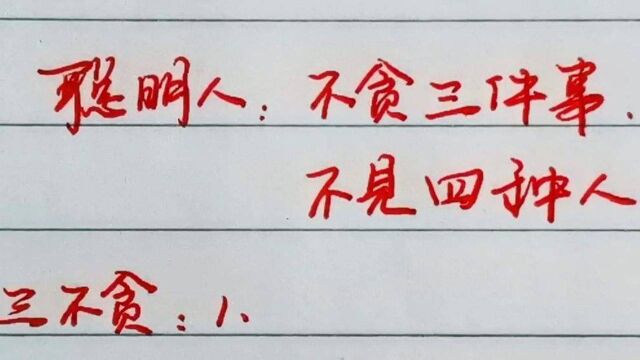 聪明人：不贪三件事.
不见四种人
三不贪：1、